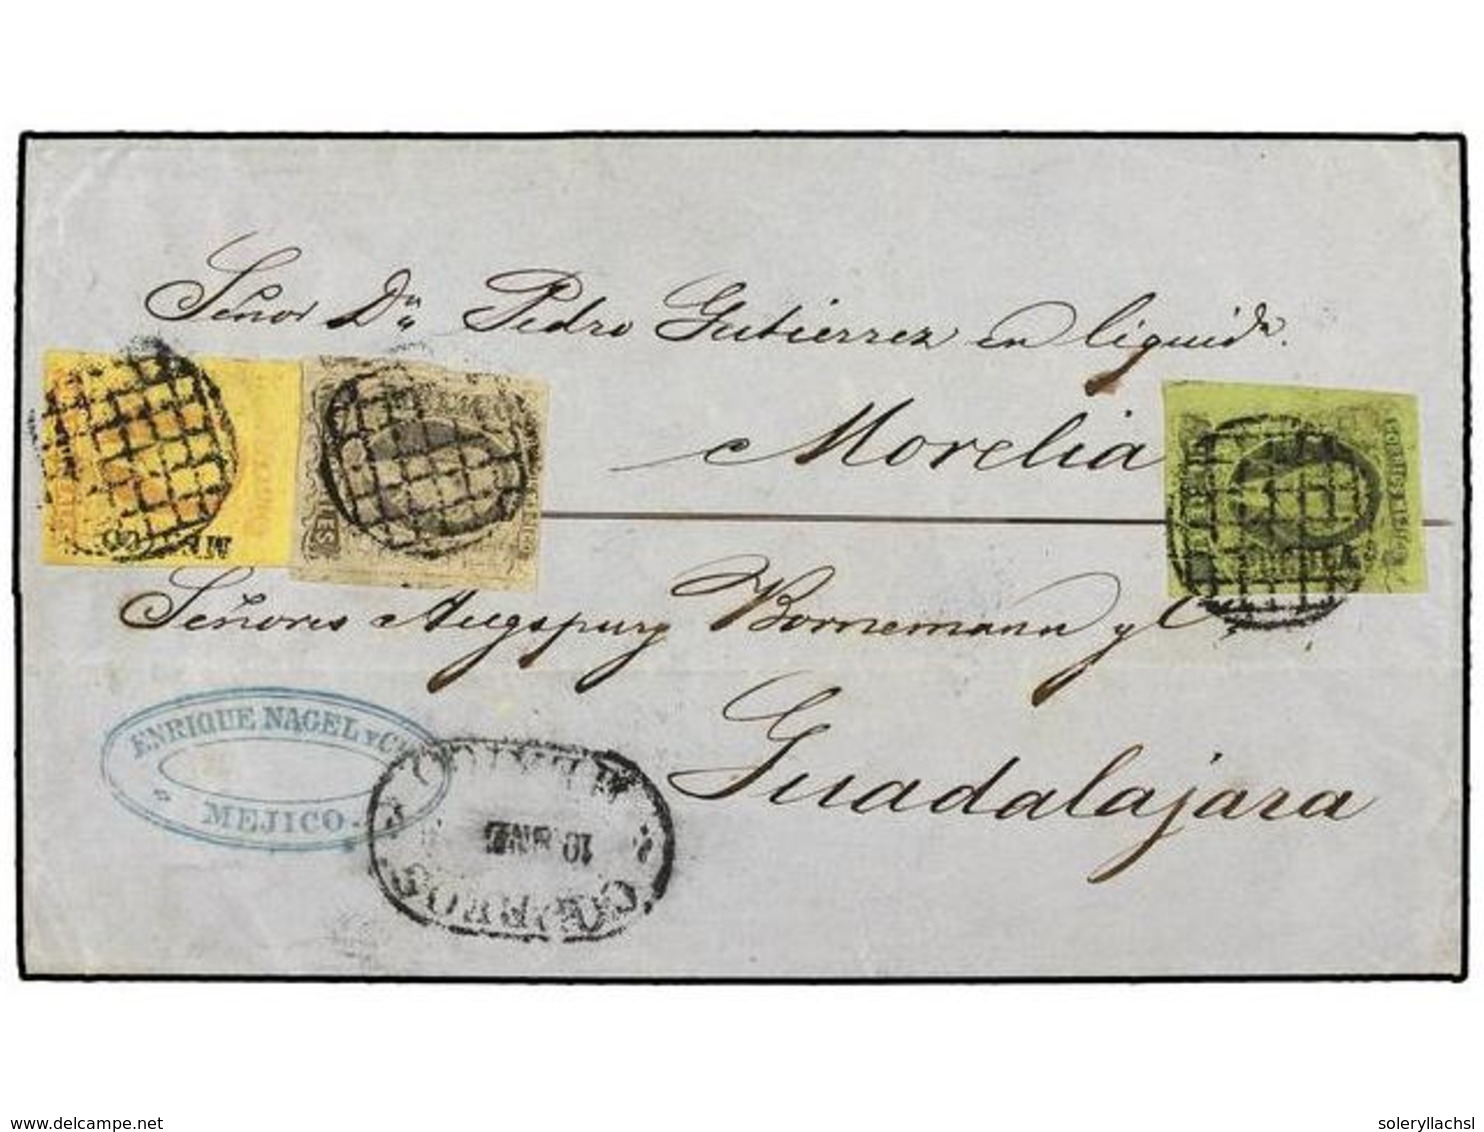 Señor Dn Pedro Gutierrez en liquidn.
Morelia
MEXICO
Señores Augspurg Bornemann y Ca
Guadalajara
ENRIQUE NAGEL Y Ca
MEJICO.
MEXICO
10 ENE
CORREOS
www.delcampe.net
soleryllachsl